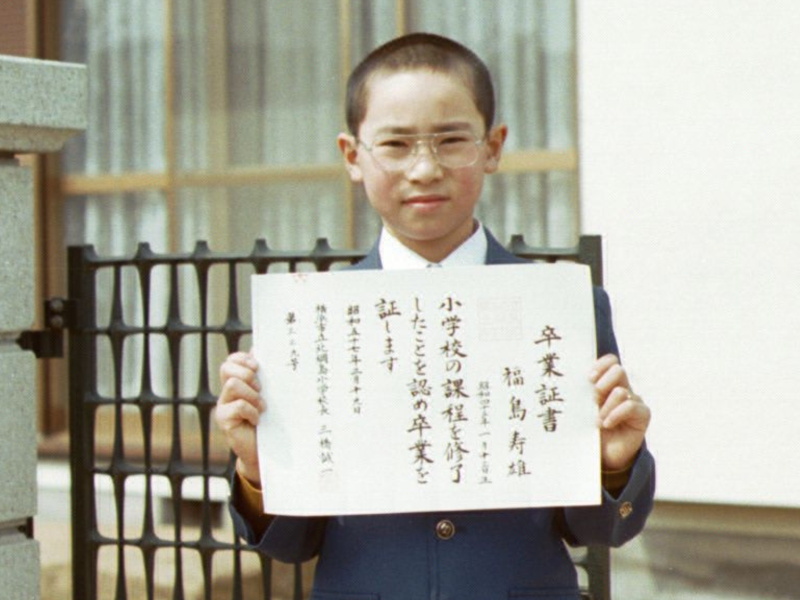 卒業証書
福島寿雄
昭和四十五年一月
小学校の課程を修了
したことを認め卒業を
証します
昭和五十七年三月十九日
横浜市立北綱島小学校長 三橋誠一